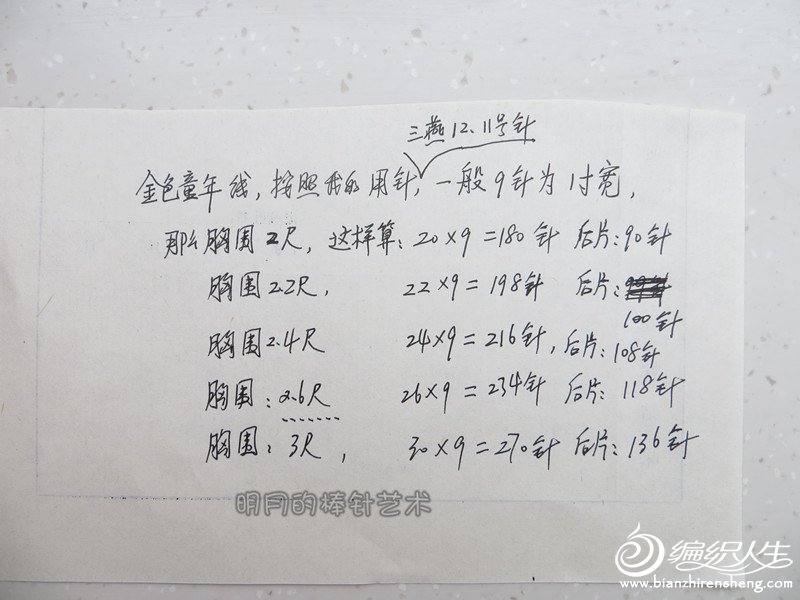 三燕12.11号针
金色童年线，按照我的用针，一般9针为1寸宽，
那么胸围2尺，这样算：20×9=180针 后片：90针
胸围2.2尺， 22×9=198针 后片：
100针
胸围2.4尺 24×9=216针，后片：108针
胸围：2.6尺 26×9=234针 后片：118针
胸围：3尺， 30×9=270针 后片：136针
明月的棒针艺术
编织人生
www.bianzhirensheng.com